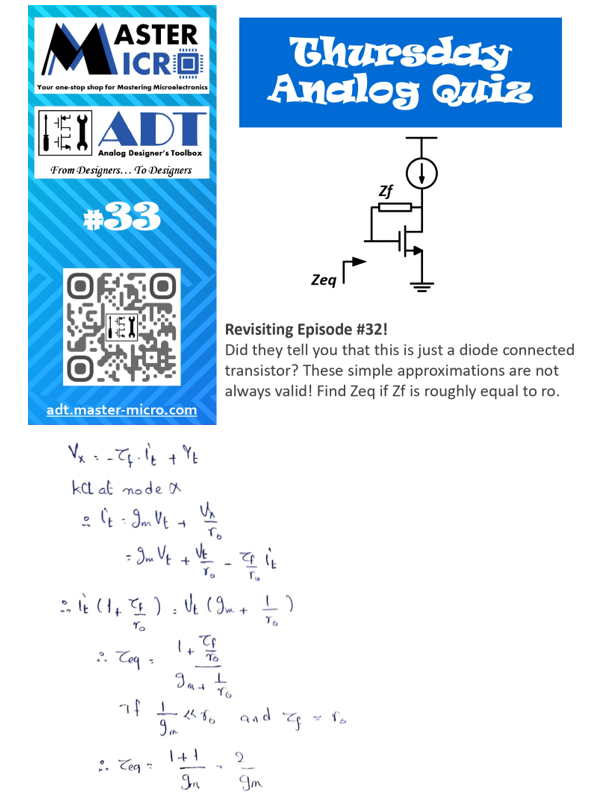 MASTER
MICRO
Your one-stop shop for Mastering Microelectronics
ADT
Analog Designer's Toolbox
From Designers... To Designers
#33
adt.master-micro.com
Thursday
Analog Quiz
Zf
Zeq
Revisiting Episode #32!
Did they tell you that this is just a diode connected
transistor? These simple approximations are not
always valid! Find Zeq if Zf is roughly equal to ro.
Vx = - Zf . it + Vt
KCL at node x
∴ it = gm Vt + Vx/ro
= gm Vt + Vt/ro - Zf/ro it
∴ it (1 + Zf/ro) = Vt (gm + 1/ro)
∴ Zeq = (1 + Zf/ro)/(gm + 1/ro)
If 1/gm << ro and Zf = ro
∴ Zeq = (1+1)/gm = 2/gm